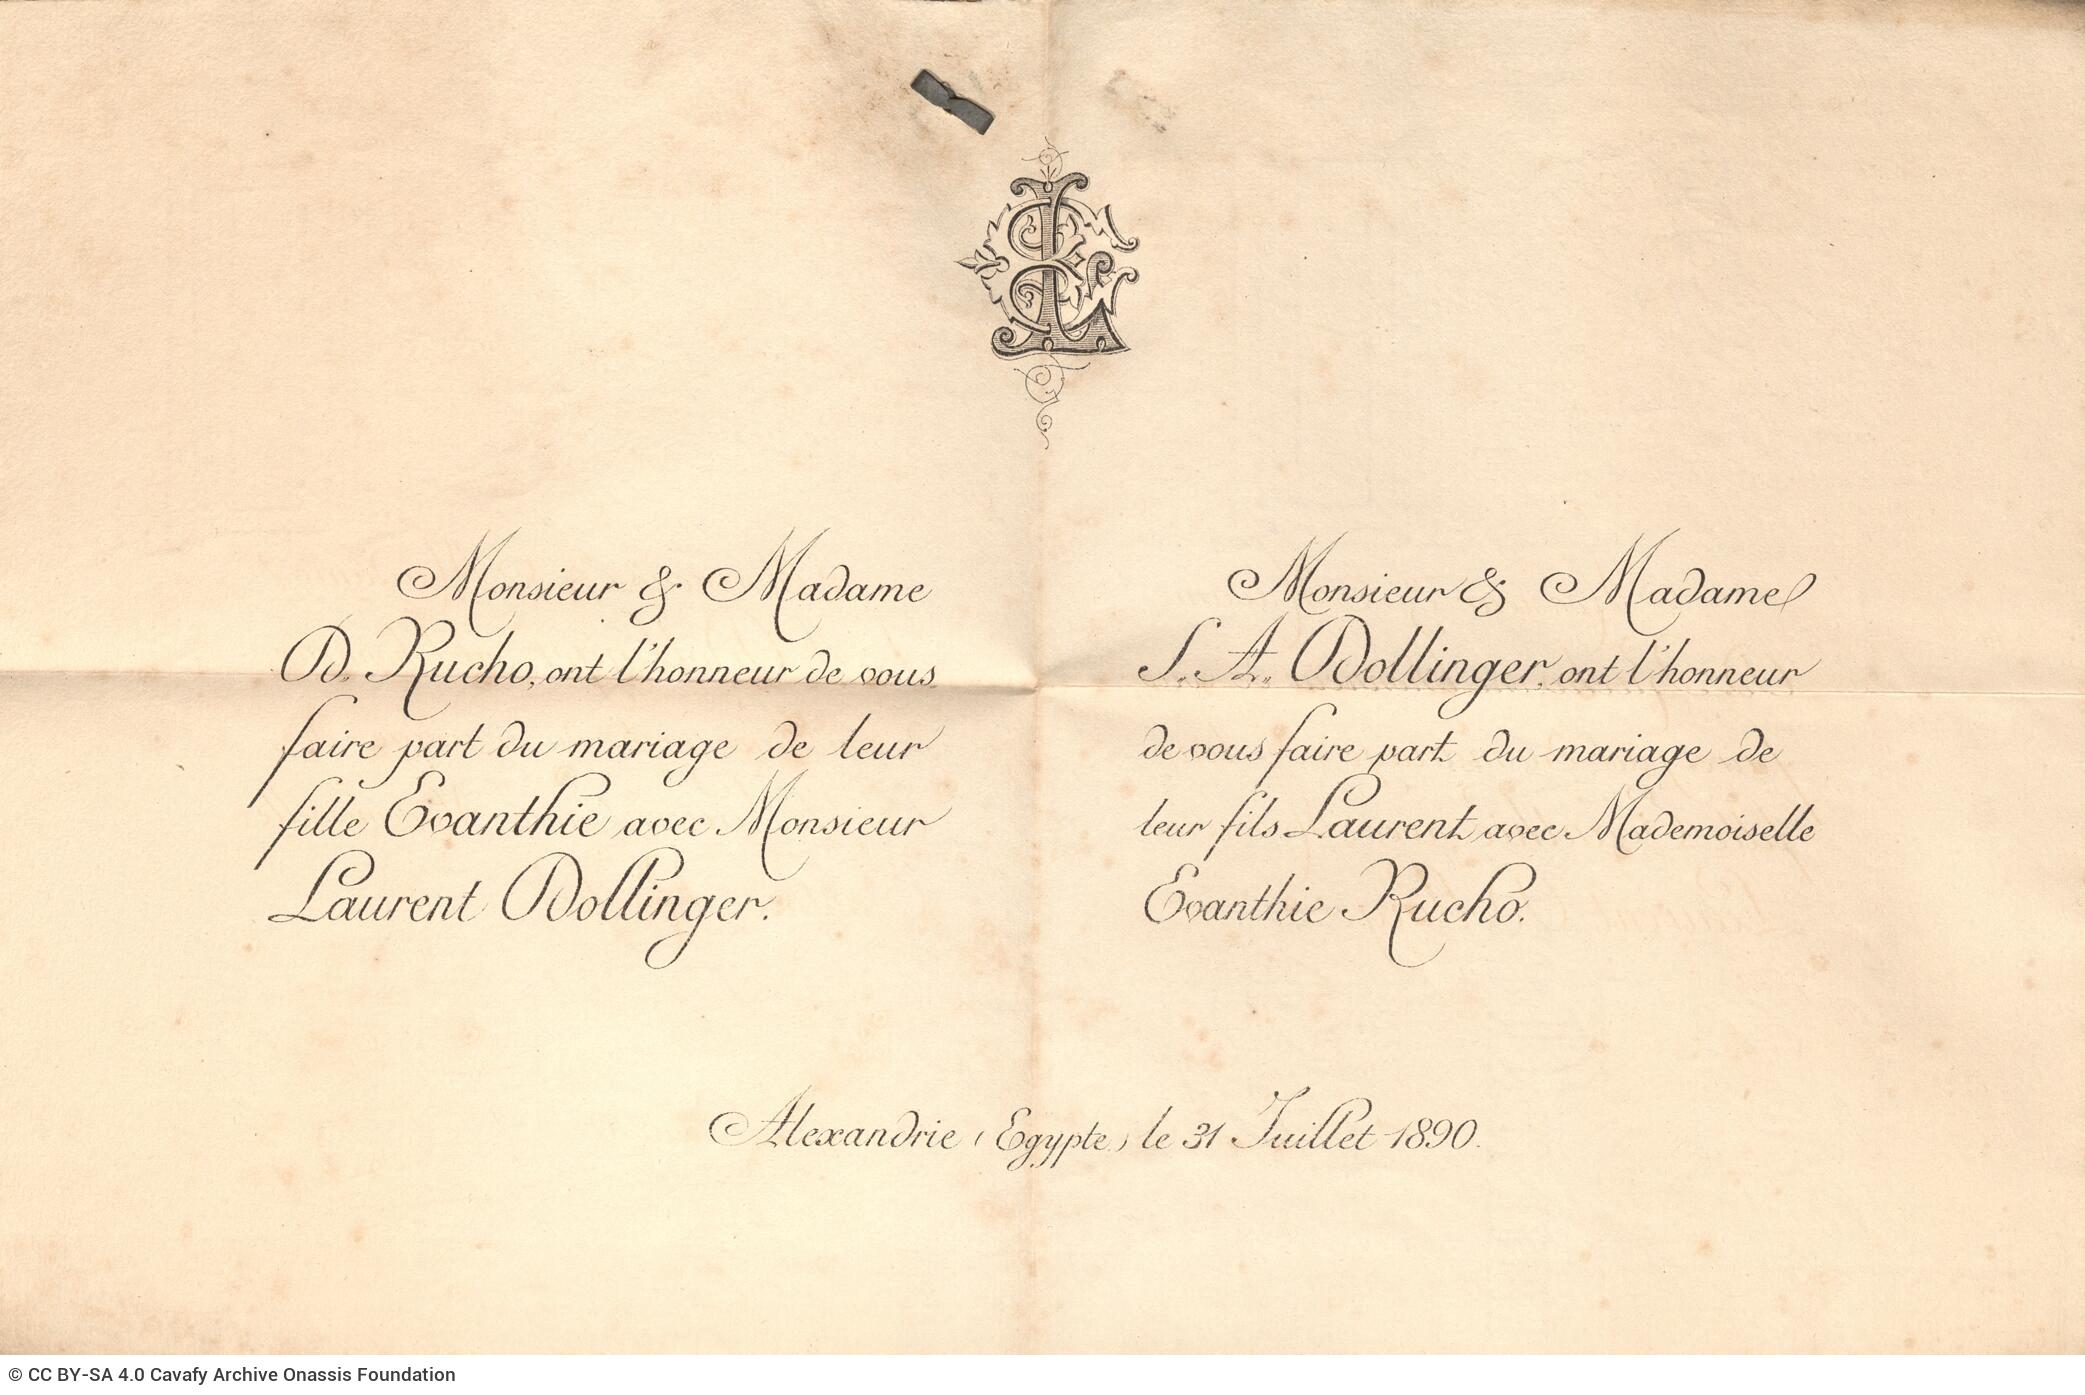 LE
Monsieur & Madame
D. Rucho, ont l'honneur de vous
faire part du mariage de leur
fille Evanthie avec Monsieur
Laurent Dollinger.
Monsieur & Madame
S. A. Dollinger, ont l'honneur
de vous faire part du mariage de
leur fils Laurent avec Mademoiselle
Evanthie Rucho.
Alexandrie (Egypte) le 31 Juillet 1890.
© CC BY-SA 4.0 Cavafy Archive Onassis Foundation